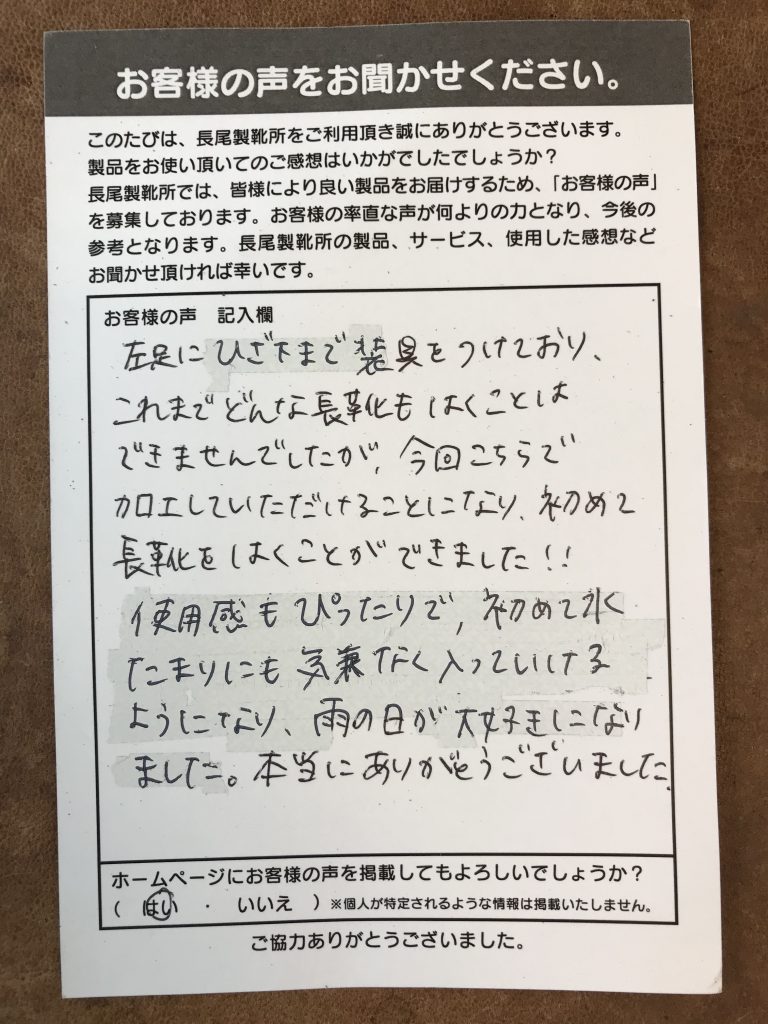 お客様の声をお聞かせください。
このたびは、長尾製靴所をご利用頂き誠にありがとうございます。
製品をお使い頂いてのご感想はいかがでしたでしょうか？
長尾製靴所では、皆様により良い製品をお届けするため、「お客様の声」
を募集しております。お客様の率直な声が何よりの力となり、今後の
参考となります。長尾製靴所の製品、サービス、使用した感想など
お聞かせ頂ければ幸いです。
お客様の声　記入欄
左足にひざ下まで装具をつけており、
これまでどんな長靴もはくことは
できませんでしたが、今回こちらで
加工していただけることになり、初めて
長靴をはくことができました!!
使用感もぴったりで、初めて水
たまりにも気兼なく入っていける
ようになり、雨の日が大好きになり
ました。本当にありがとうございました。
ホームページにお客様の声を掲載してもよろしいでしょうか？
（　はい　・　いいえ　）※個人が特定されるような情報は掲載いたしません。
ご協力ありがとうございました。